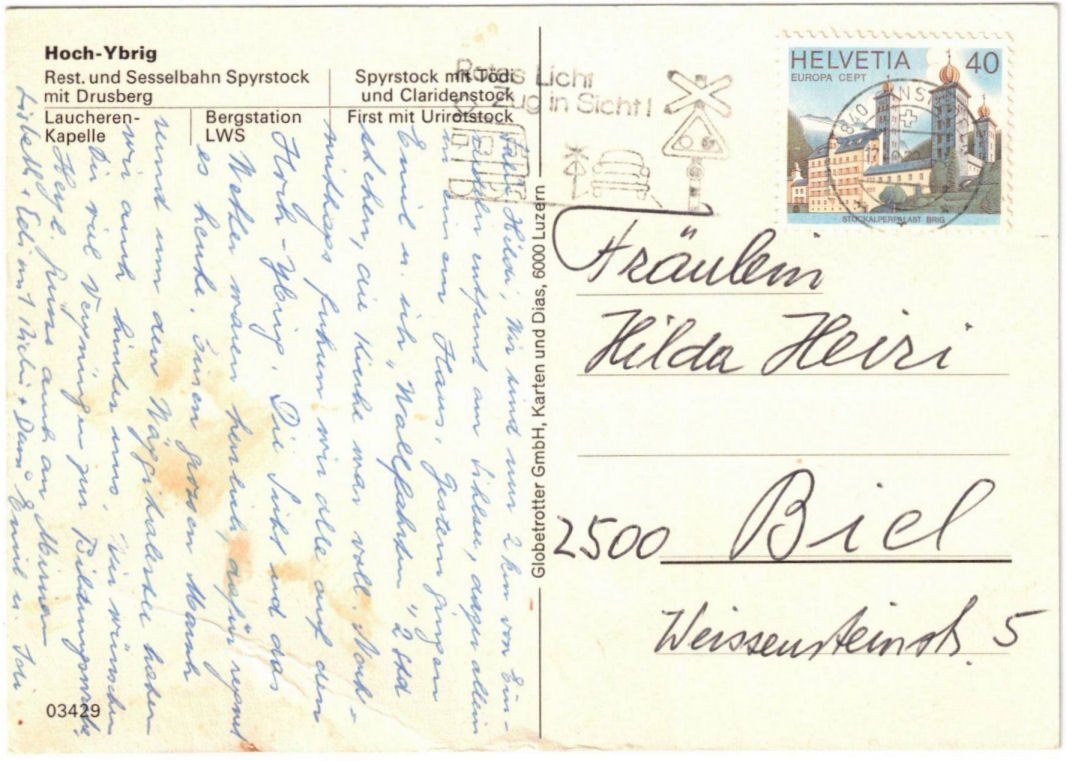 Hoch-Ybrig
Rest. und Sesselbahn Spyrstock
mit Drusberg
Spyrstock mit Tödi
und Claridenstock
Laucheren-
Kapelle
Bergstation
LWS
First mit Urirotstock
Rotes Licht
Zug in Sicht!
HELVETIA 40
EUROPA CEPT
STOCKALPERPALAST BRIG
8840 EINS
Hilda, Wir sind nur 2 km von Ein-
entfernt am Sihlsee, ganz allein
in ein em Haus. Gestern gingen
Emil u. ich "Wallfahrten" 2 Std
stehen, die Kirche war voll. Nach-
mittags fuhren wir alle auf den
Hoch-Ybrig. Die Sicht und das
Wetter waren herrlich, dafür regnet
es heute. Einen grossen Marsch
rund um den Wäggithalersee haben
wir auch hinter uns. Wir wünschen
Dir viel Vergnügen zur Bildungswoche.
Herzl. Grüsse auch an Miriam
Lisbeth + Edi mit + Dani Emil u. Toni
Fräulein
Hilda Heiri
2500 Biel
Weissensteinstr. 5
Globetrotter GmbH, Karten und Dias, 6000 Luzern
03429